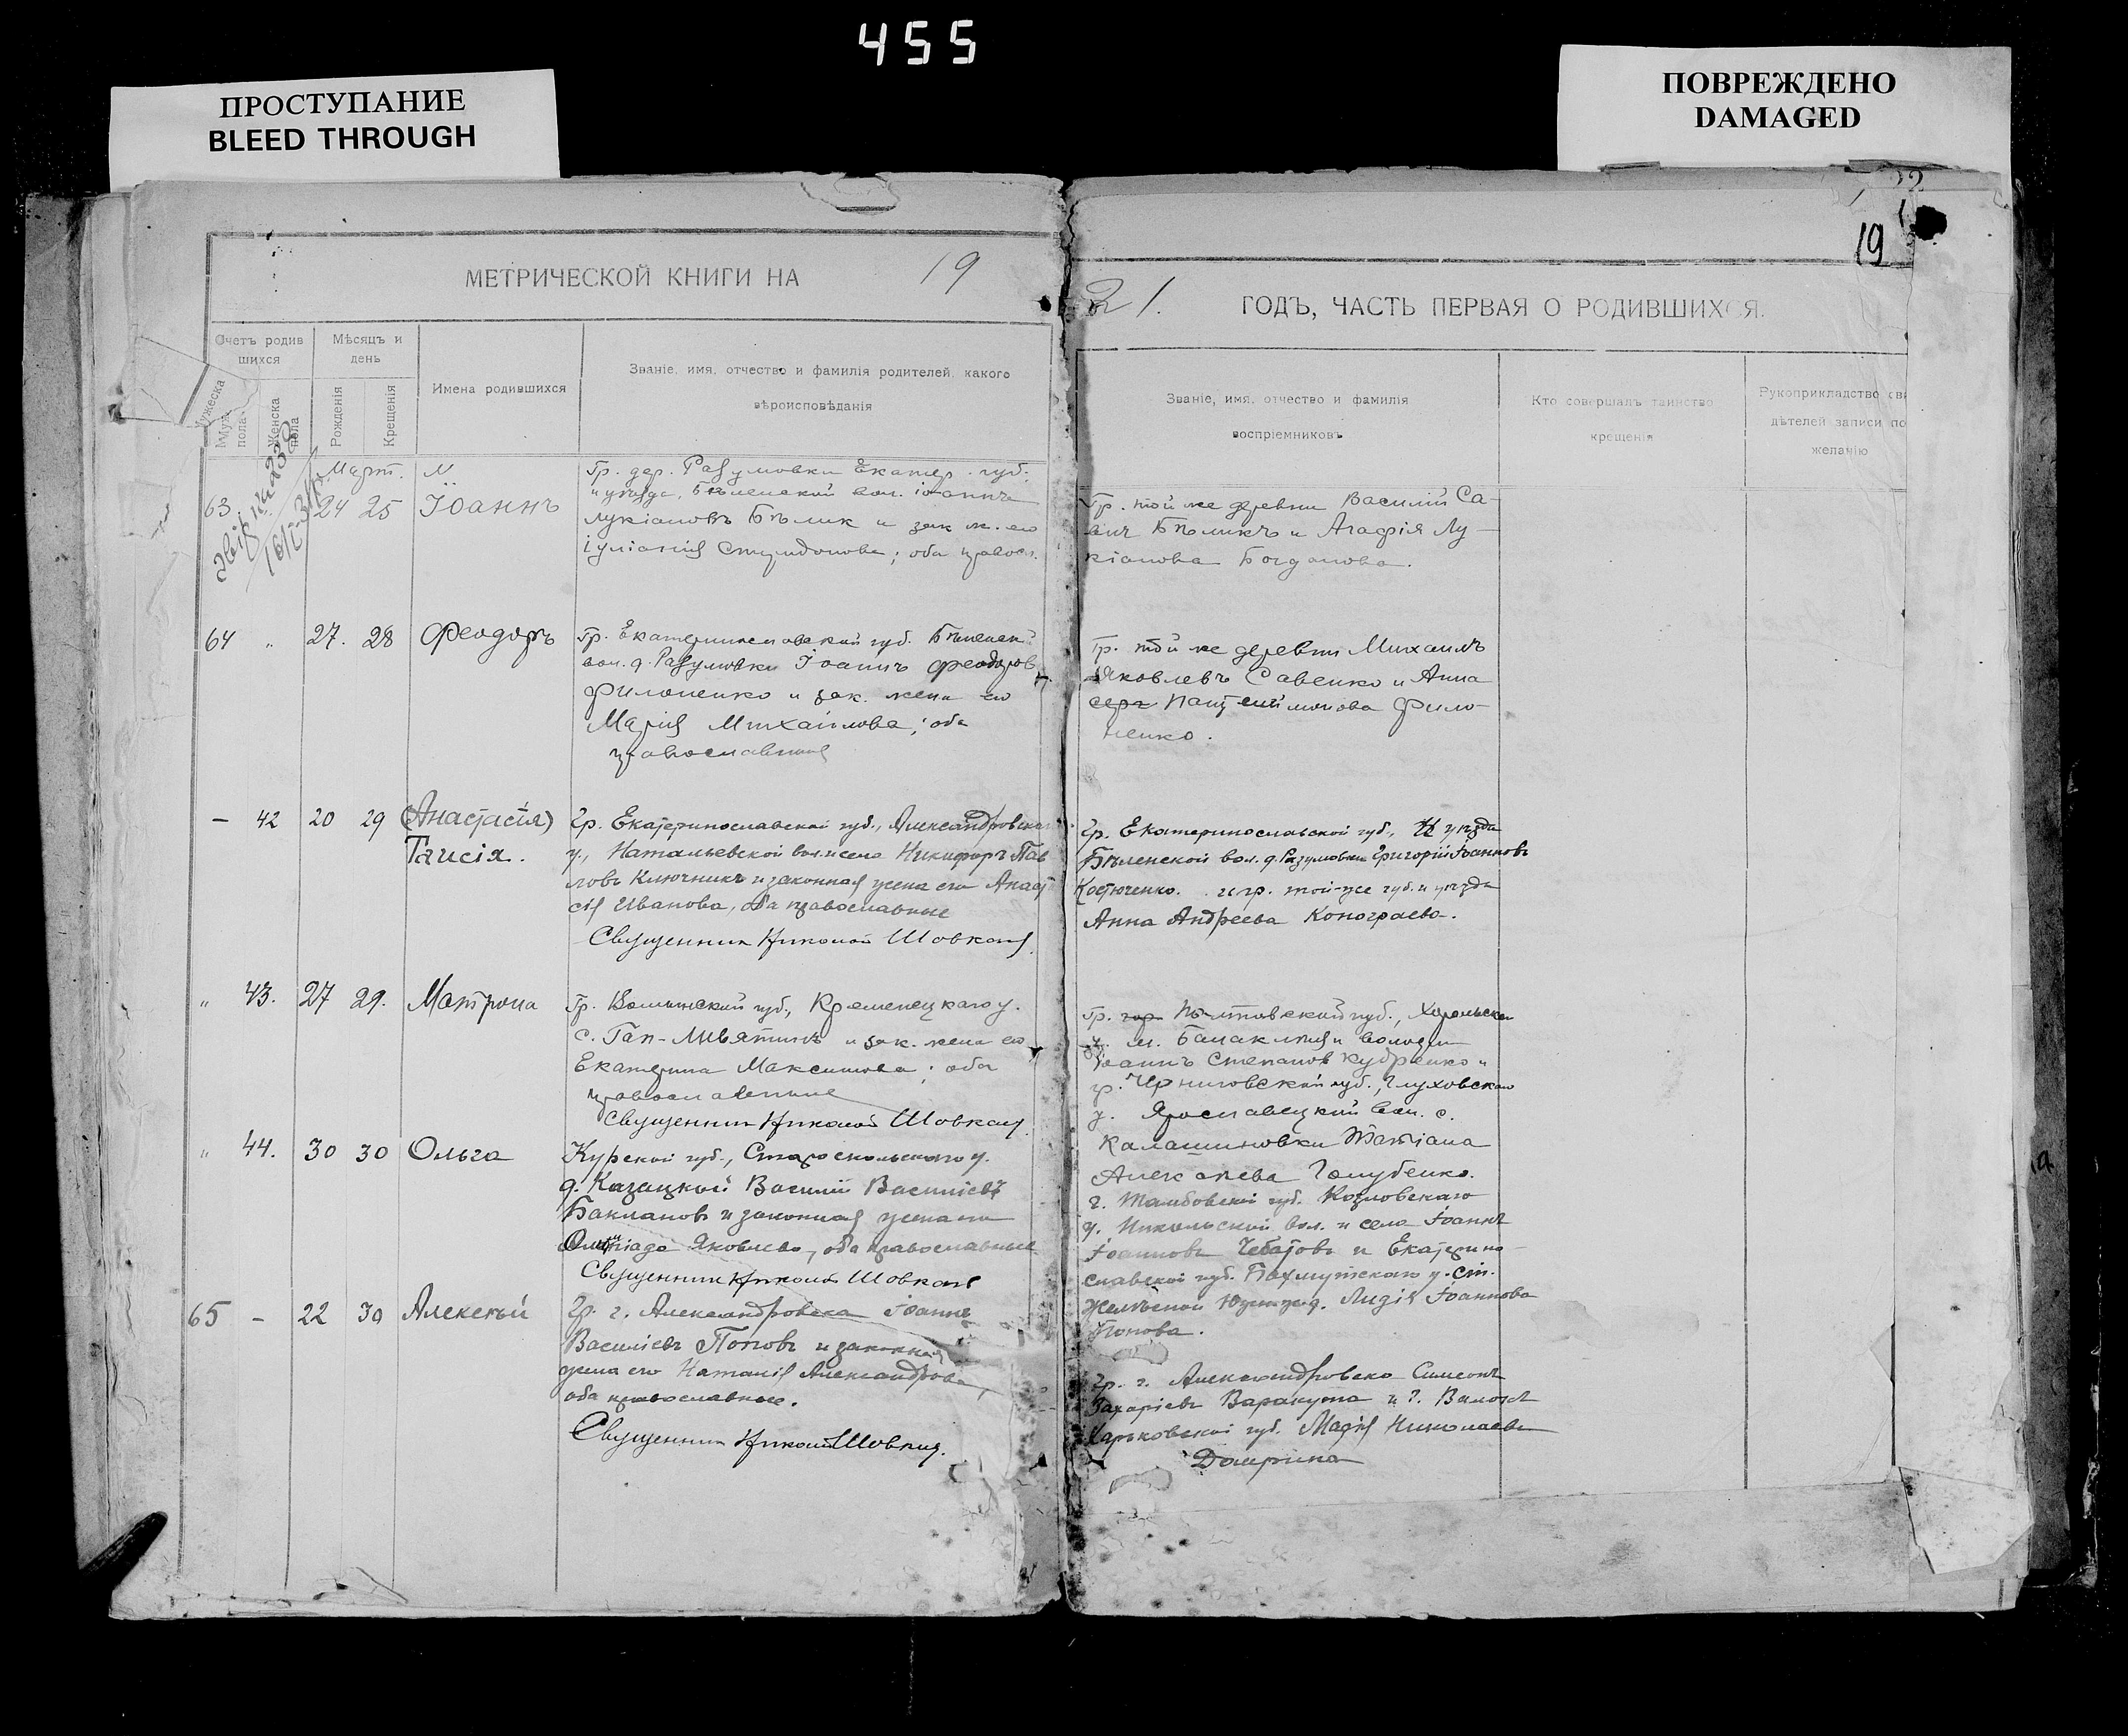 455
ПРОСТУПАНИЕ
BLEED THROUGH
ПОВРЕЖДЕНО
DAMAGED
19
МЕТРИЧЕСКОЙ КНИГИ НА 19
21. ГОДЪ, ЧАСТЬ ПЕРВАЯ О РОДИВШИХСЯ.
Счетъ родив
шихся
Мѣсяцъ и
день
Имена родившихся
Званіе, имя, отчество и фамилія родителей, какого
вѣроисповѣданія
Мужеска
пола
Женска
пола
Рожденія
Крещенія
Званіе, имя, отчество и фамилія
воспріемниковъ
Кто совершалъ таинство
крещенія
Рукоприкладство сви
дѣтелей записи по
желанію
Март.
63 24 25 Іоаннъ
Гр. дер. Разумовки Екатер. губ.
и уѣзда, Бѣленской вол. Іоаннъ
Лукіановъ Бѣлик и зак. ж. его
Іуліанія; оба правосл.
Гр. той же деревни Василій Са-
вич Бѣликъ и Агафія Лу-
кіанова Богданова.
64 " 27. 28 Феодоръ
Гр. Екатеринославской губ. Бѣленск
вол. д. Разумовки Іоаннъ Феодоров
Филоненко и зак. жена его
Марія Михайлова; оба
православныя
Гр. той же деревни Михаилъ
Яковлевъ Савенко и Анна
Пантелеймонова Фило-
ненко.
- 42 20 29 (Анастасія)
Таисія.
Гр. Екатеринославской губ., Александровска
у., Натальевской вол. и села Никифоръ Пав
ловъ Ключникъ и законная жена его Анаст
сія Иванова, оба православные
Священник Николай Шовкопя
Гр. Екатеринославской губ., и уѣзда
Бѣленской вол. д. Разумовки Григорій Іоанновъ
Костюченко. и гр. той-же губ. и уѣзда
Анна Андреева Конограева.
" 43. 27 29. Матрона
Гр. Волынской губ., Кременецкаго у.
с. Гап-Ливятинъ и зак. жена его
Екатерина Максимова; оба
православные
Священник Николай Шовкопя
Гр. Полтавской губ., Хорольска
у. м. Балаклія и волости
Іоаннъ Степанов Кудренко и
гр. Черниговской губ., Глуховскаго
у. Ярославецкій вол. с.
Калашиновки Татіана
Алексѣева Голубенко.
" 44. 30 30 Ольга
Курской губ., Старооскольскаго у.
д. Казацкой Василій Василіевъ
Баклановъ и законная жена его
Олимпіада Яковлева, оба православные
Священник Николай Шовкопя
г. Тамбовской губ. Козловскаго
у. Никольской вол. и села Іоаннъ
Іоанновъ Чебатовъ и Екатерино-
славской губ. Бахмутскаго у. ст.
Лидія Іоаннова
Попова.
65 - 22 30 Алексѣй
Гр. г. Александровска Іоаннъ
Василіевъ Поповъ и законная
жена его Наталія Александрова,
оба православные.
Священник Николай Шовкопя.
Гр. г. Александровска Симеонъ
Захаріевъ Варакута и г. Валокъ
Харьковской губ. Марія Николаева